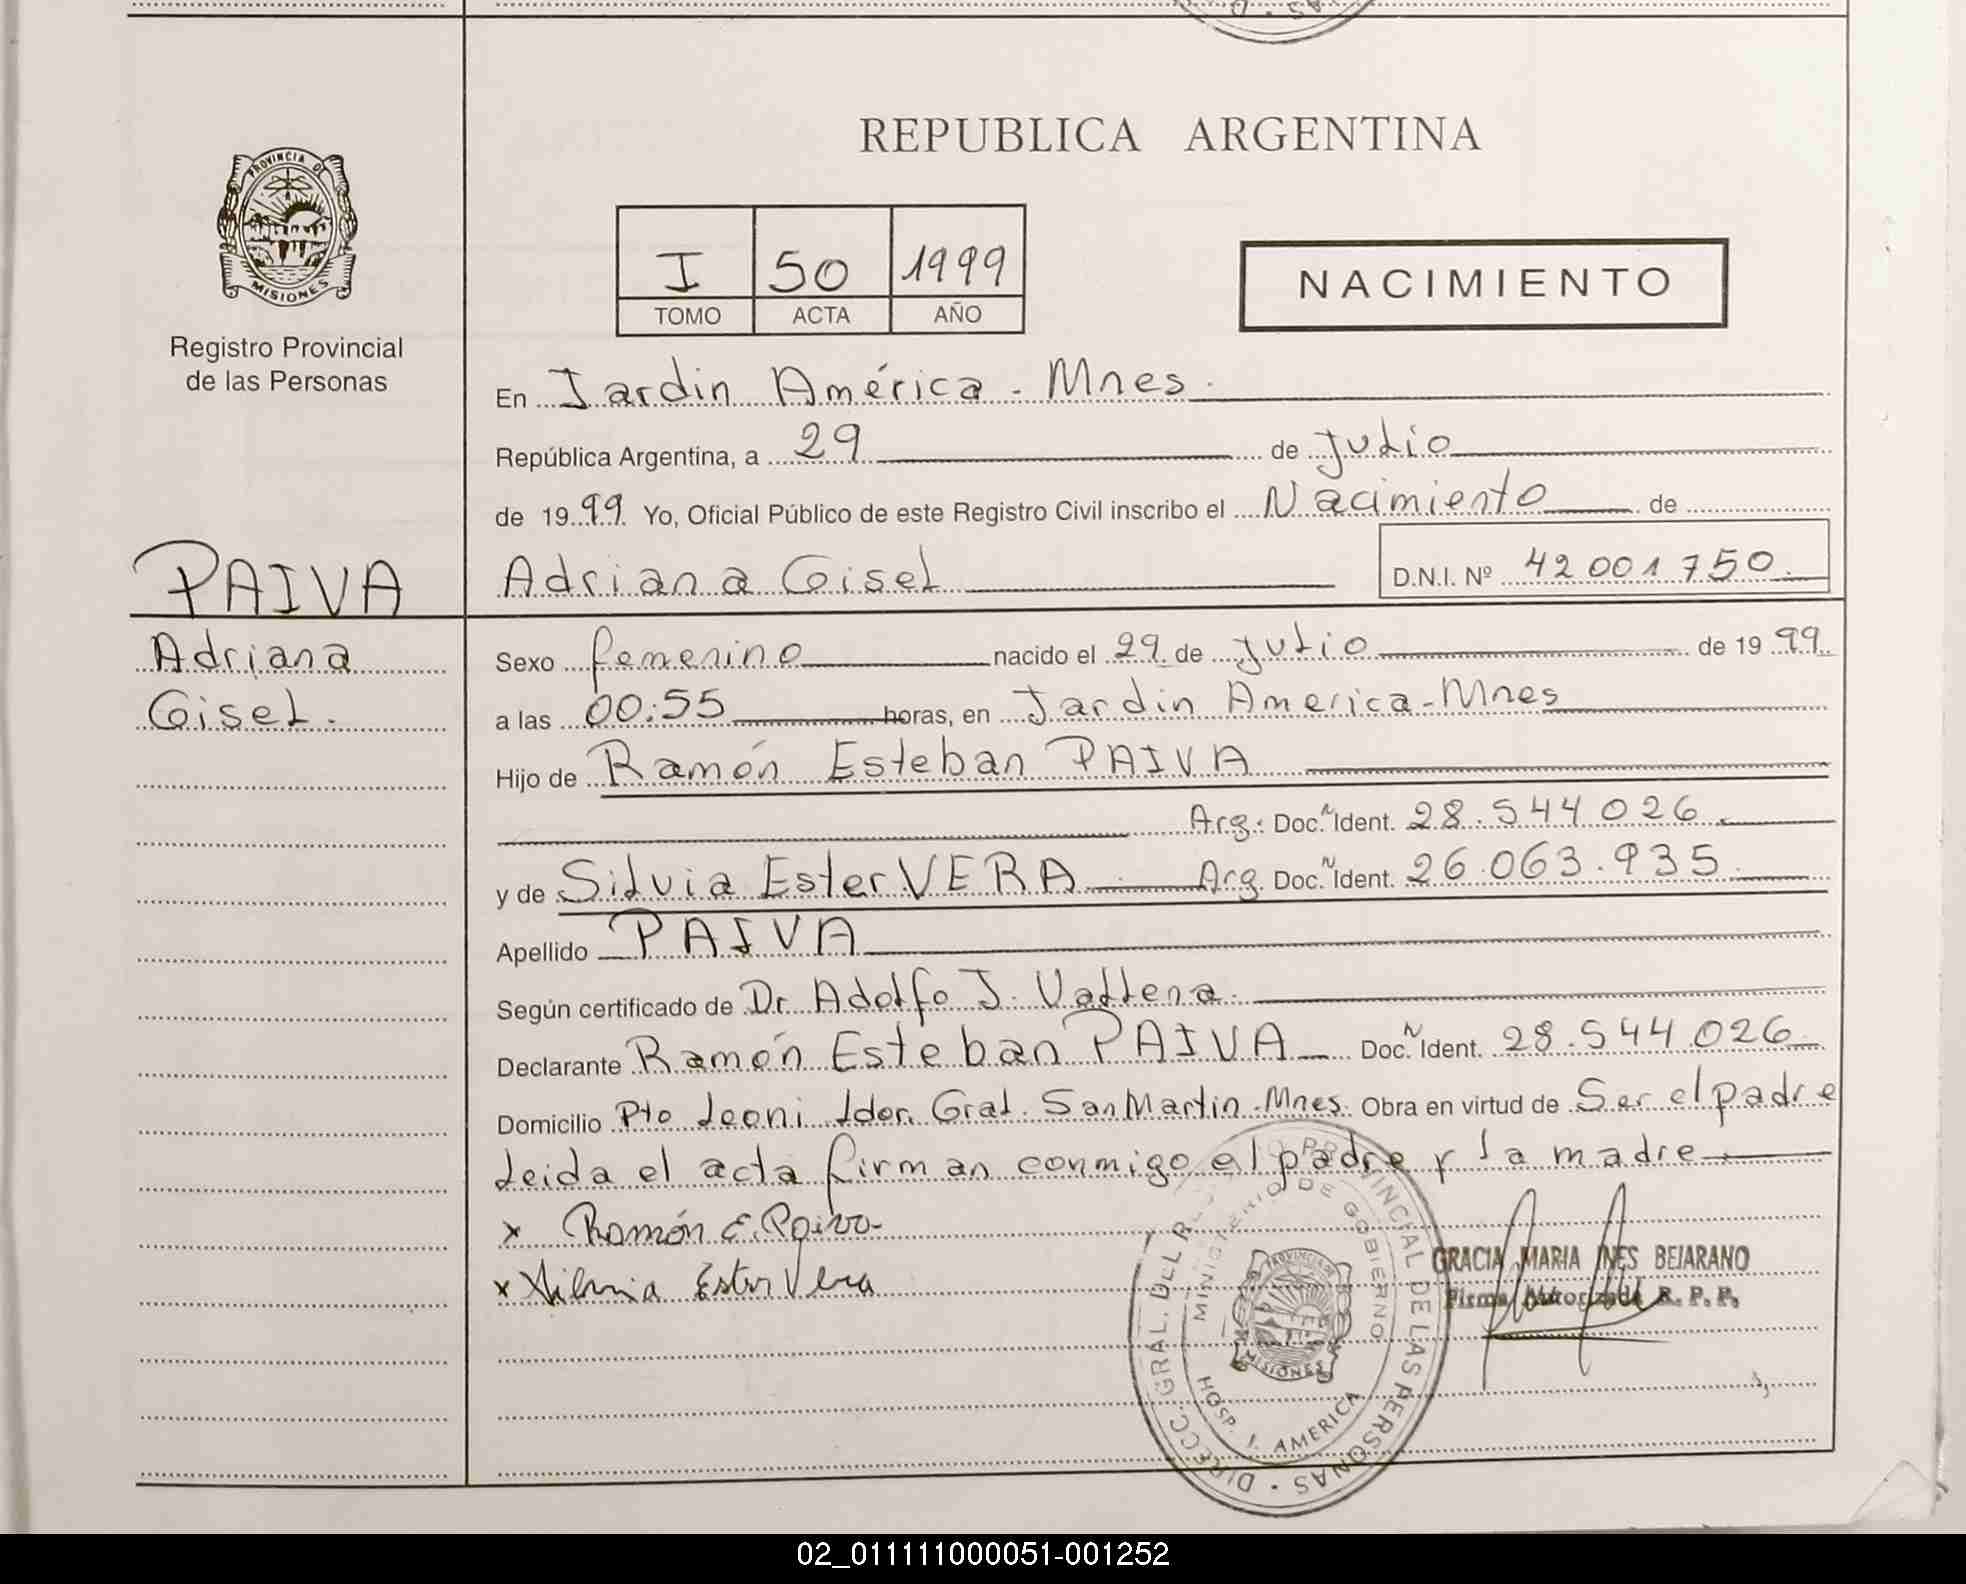 REPUBLICA ARGENTINA
PROVINCIA DE
MISIONES
Registro Provincial
de las Personas
I 50 1999
TOMO ACTA AÑO
NACIMIENTO
En Jardin América - Mnes.
República Argentina, a 29 de Julio
de 1999 Yo, Oficial Público de este Registro Civil inscribo el Nacimiento de
PAIVA
Adriana Gisel
D.N.I. Nº 42 001 750.
Adriana
Gisel.
Sexo femenino nacido el 29 de Julio de 1999
a las 00:55 horas, en Jardin America - Mnes
Hijo de Ramón Esteban PAIVA
Arg. Doc. Ident. 28.544 026.
y de Silvia Ester VERA Arg. Doc. Ident. 26.063.935.
Apellido PAIVA
Según certificado de Dr. Adolfo J.
Declarante Ramón Esteban PAIVA Doc. Ident. 28.544 026.
Domicilio Pto Leoni Lder. Gral. San Martin - Mnes. Obra en virtud de Ser el padre
Leida el acta firman conmigo el padre y la madre
x Ramón E. Paiva
x Silvia Ester Vera
GRACIA MARIA INES BEJARANO
Firma Autorizada R. P. P.
DIRECC. GRAL. DEL PROVINCIAL DE LAS PERSONAS
MINISTERIO DE GOBIERNO
PROVINCIA
MISIONES
HOSP. J. AMERICA
02_011111000051-001252